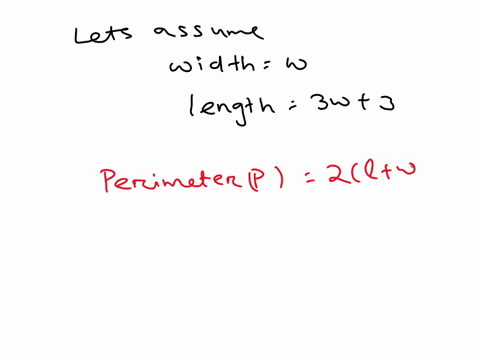 Lets assume
width = w
length = 3w + 3
Perimeter(P) = 2(l+w